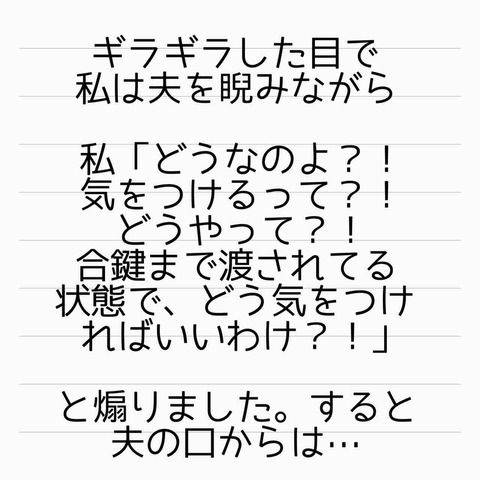 ギラギラした目で
私は夫を睨みながら
私「どうなのよ？！
気をつけるって？！
どうやって？！
合鍵まで渡されてる
状態で、どう気をつけ
ればいいわけ？！」
と煽りました。すると
夫の口からは…